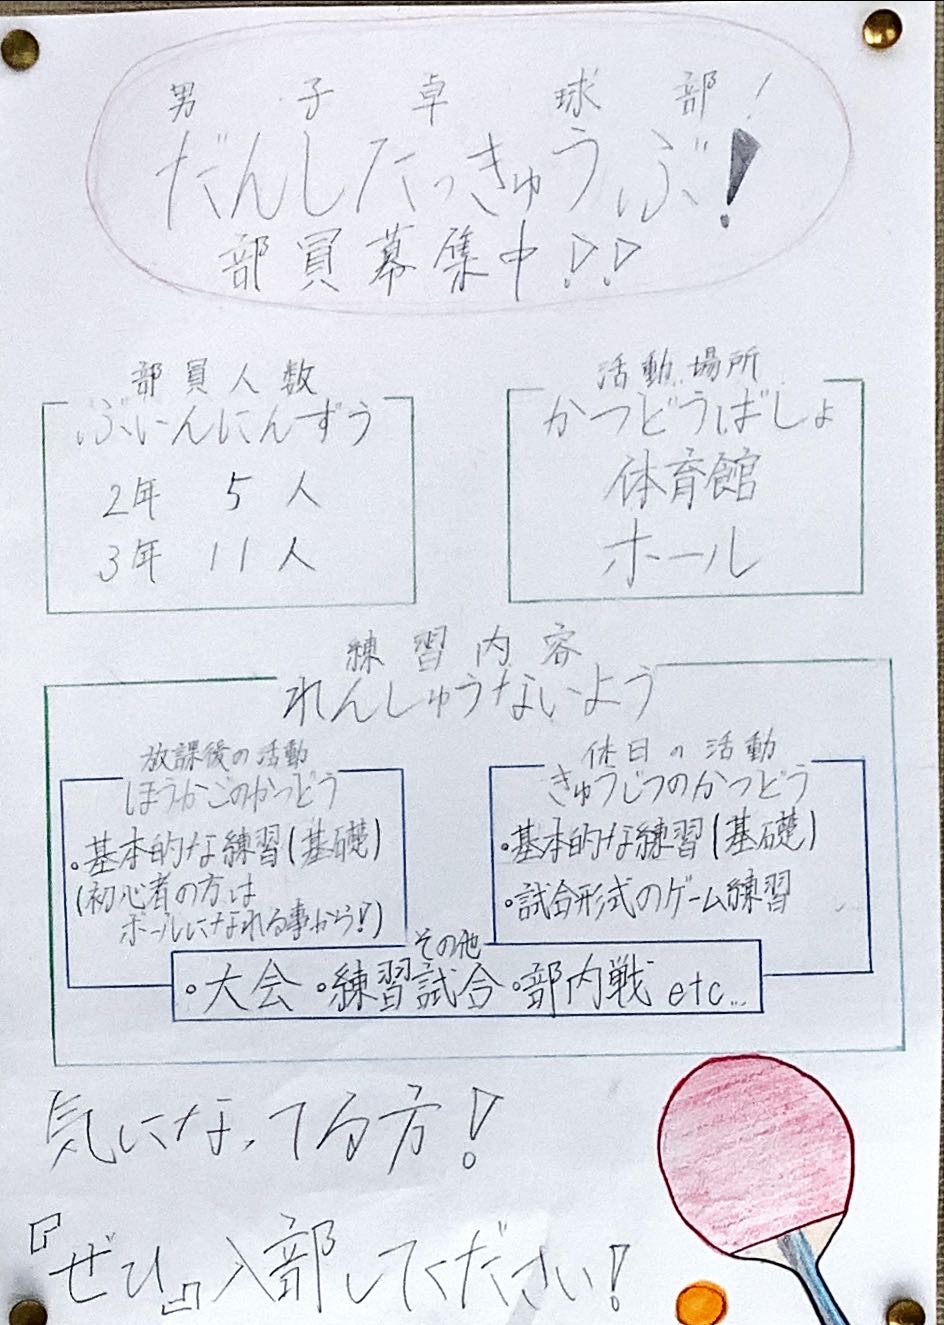 男子卓球部!
だんしたっきゅうぶ!
部員募集中!!
部員人数
ぶいんにんずう
2年 5人
3年 11人
活動場所
かつどうばしょ
体育館
ホール
練習内容
れんしゅうないよう
放課後の活動
ほうかごのかつどう
・基本的な練習(基礎)
(初心者の方は
ボールになれる事から!)
休日の活動
きゅうじつのかつどう
・基本的な練習(基礎)
・試合形式のゲーム練習
その他
・大会・練習試合・部内戦 etc...
気になってる方!
『ぜひ』入部してください!